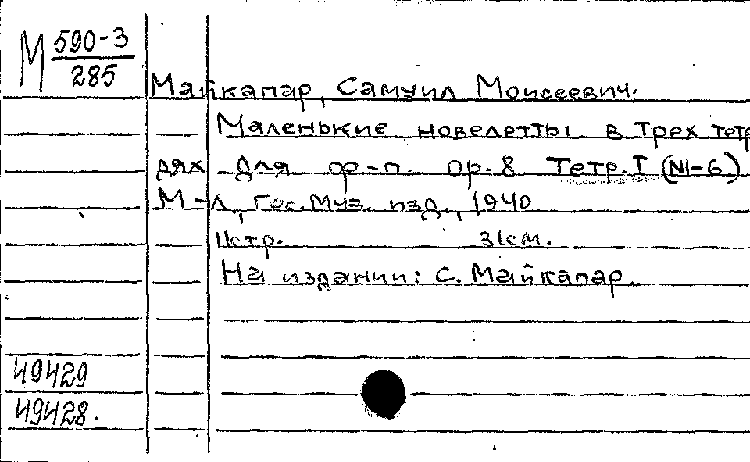 М 590-3
285
Майкапар, Самуил Моисеевич.
Маленькие новелетты в трех тетр
дях для ф-п. Ор. 8 Тетр. I (№1-6)
М-Л, Гос. Муз. изд., 1940
11 стр. 31 см.
На издании: С. Майкапар.
49429
49428.